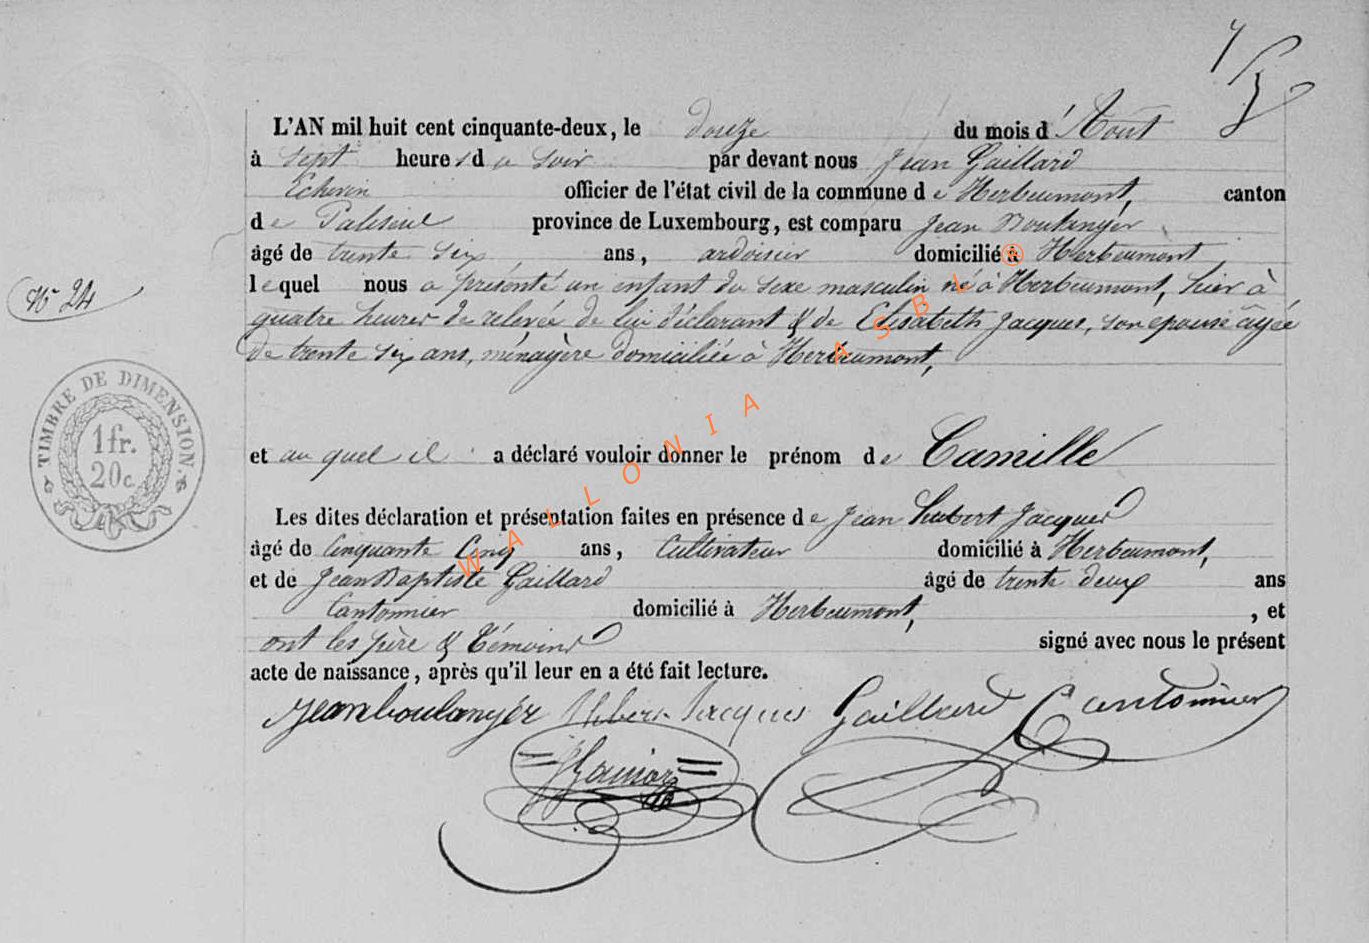 L'AN mil huit cent cinquante-deux, le douze du mois d' Août
à sept heures du soir par devant nous Jean Gaillard
Echevin officier de l'état civil de la commune de Herbeumont, canton
de Paliseul province de Luxembourg, est comparu Jean Boulanger
âgé de trente six ans, ardoisier domicilié à Herbeumont
lequel nous a présenté un enfant du sexe masculin né à Herbeumont, hier à
quatre heures de relevée de lui déclarant & de Elisabeth Jacques, son epouse agée
de trente six ans, ménagère domiciliée à Herbeumont,
N° 24
TIMBRE DE DIMENSION.
1 fr.
20 c.
et au quel il a déclaré vouloir donner le prénom de Camille
Les dites déclaration et présentation faites en présence de Jean hubert Jacques
âgé de Cinquante Cinq ans, Cultivateur domicilié à Herbeumont,
et de Jean Baptiste Gaillard âgé de trente deux ans
Cantonnier domicilié à Herbeumont, , et
ont les père & témoins signé avec nous le présent
acte de naissance, après qu'il leur en a été fait lecture.
jean boulanger Jacques Gaillard Cantonnier
WALLONIA ASBL ®